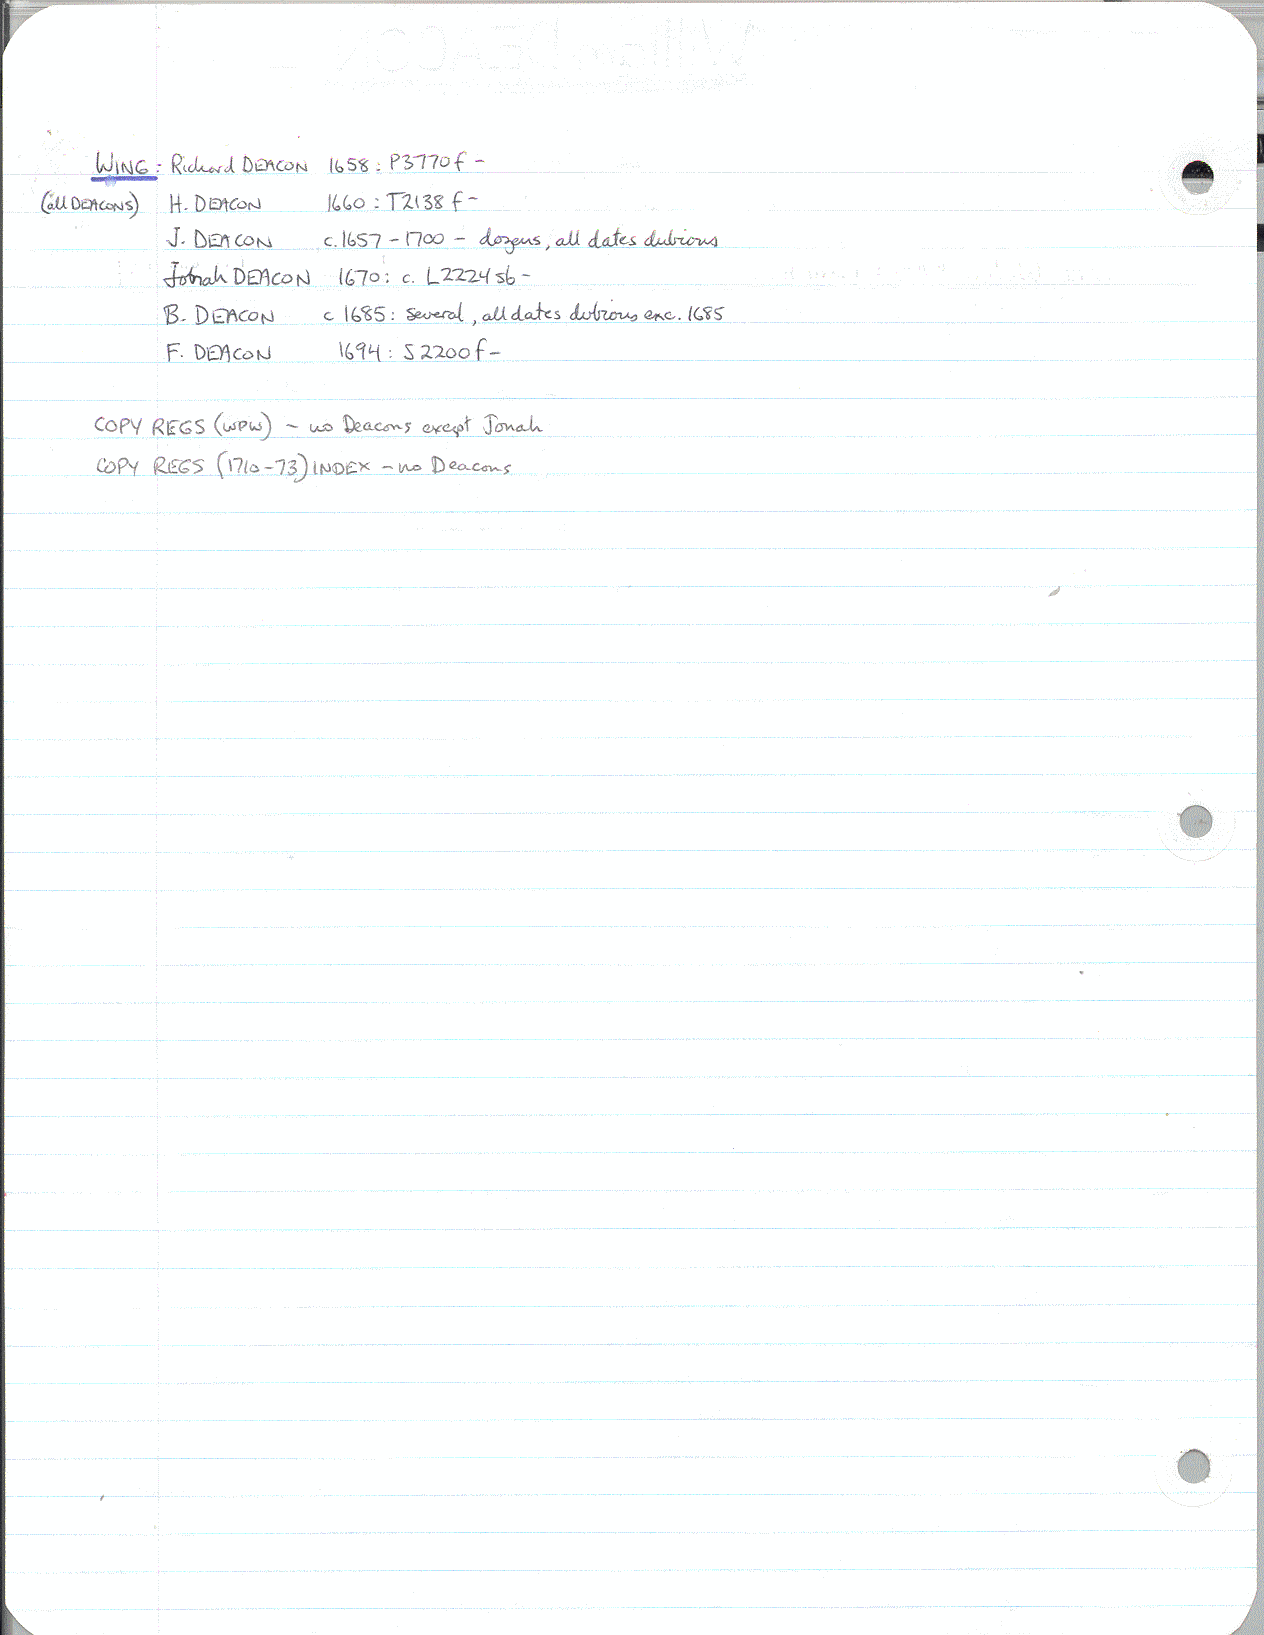 WING: Richard DEACON 1658: P3770f-
(all DEACONS) H. DEACON 1660: T2138f-
J. DEACON c.1657-1700 - dozens, all dates dubious
DEACON 1670: c. L2224sb-
B. DEACON c 1685: several, all dates dubious exc. 1685
F. DEACON 1694: S2200f-
COPY REGS (WPW) - no Deacons except Jonah
COPY REGS (1710-73) INDEX - no Deacons